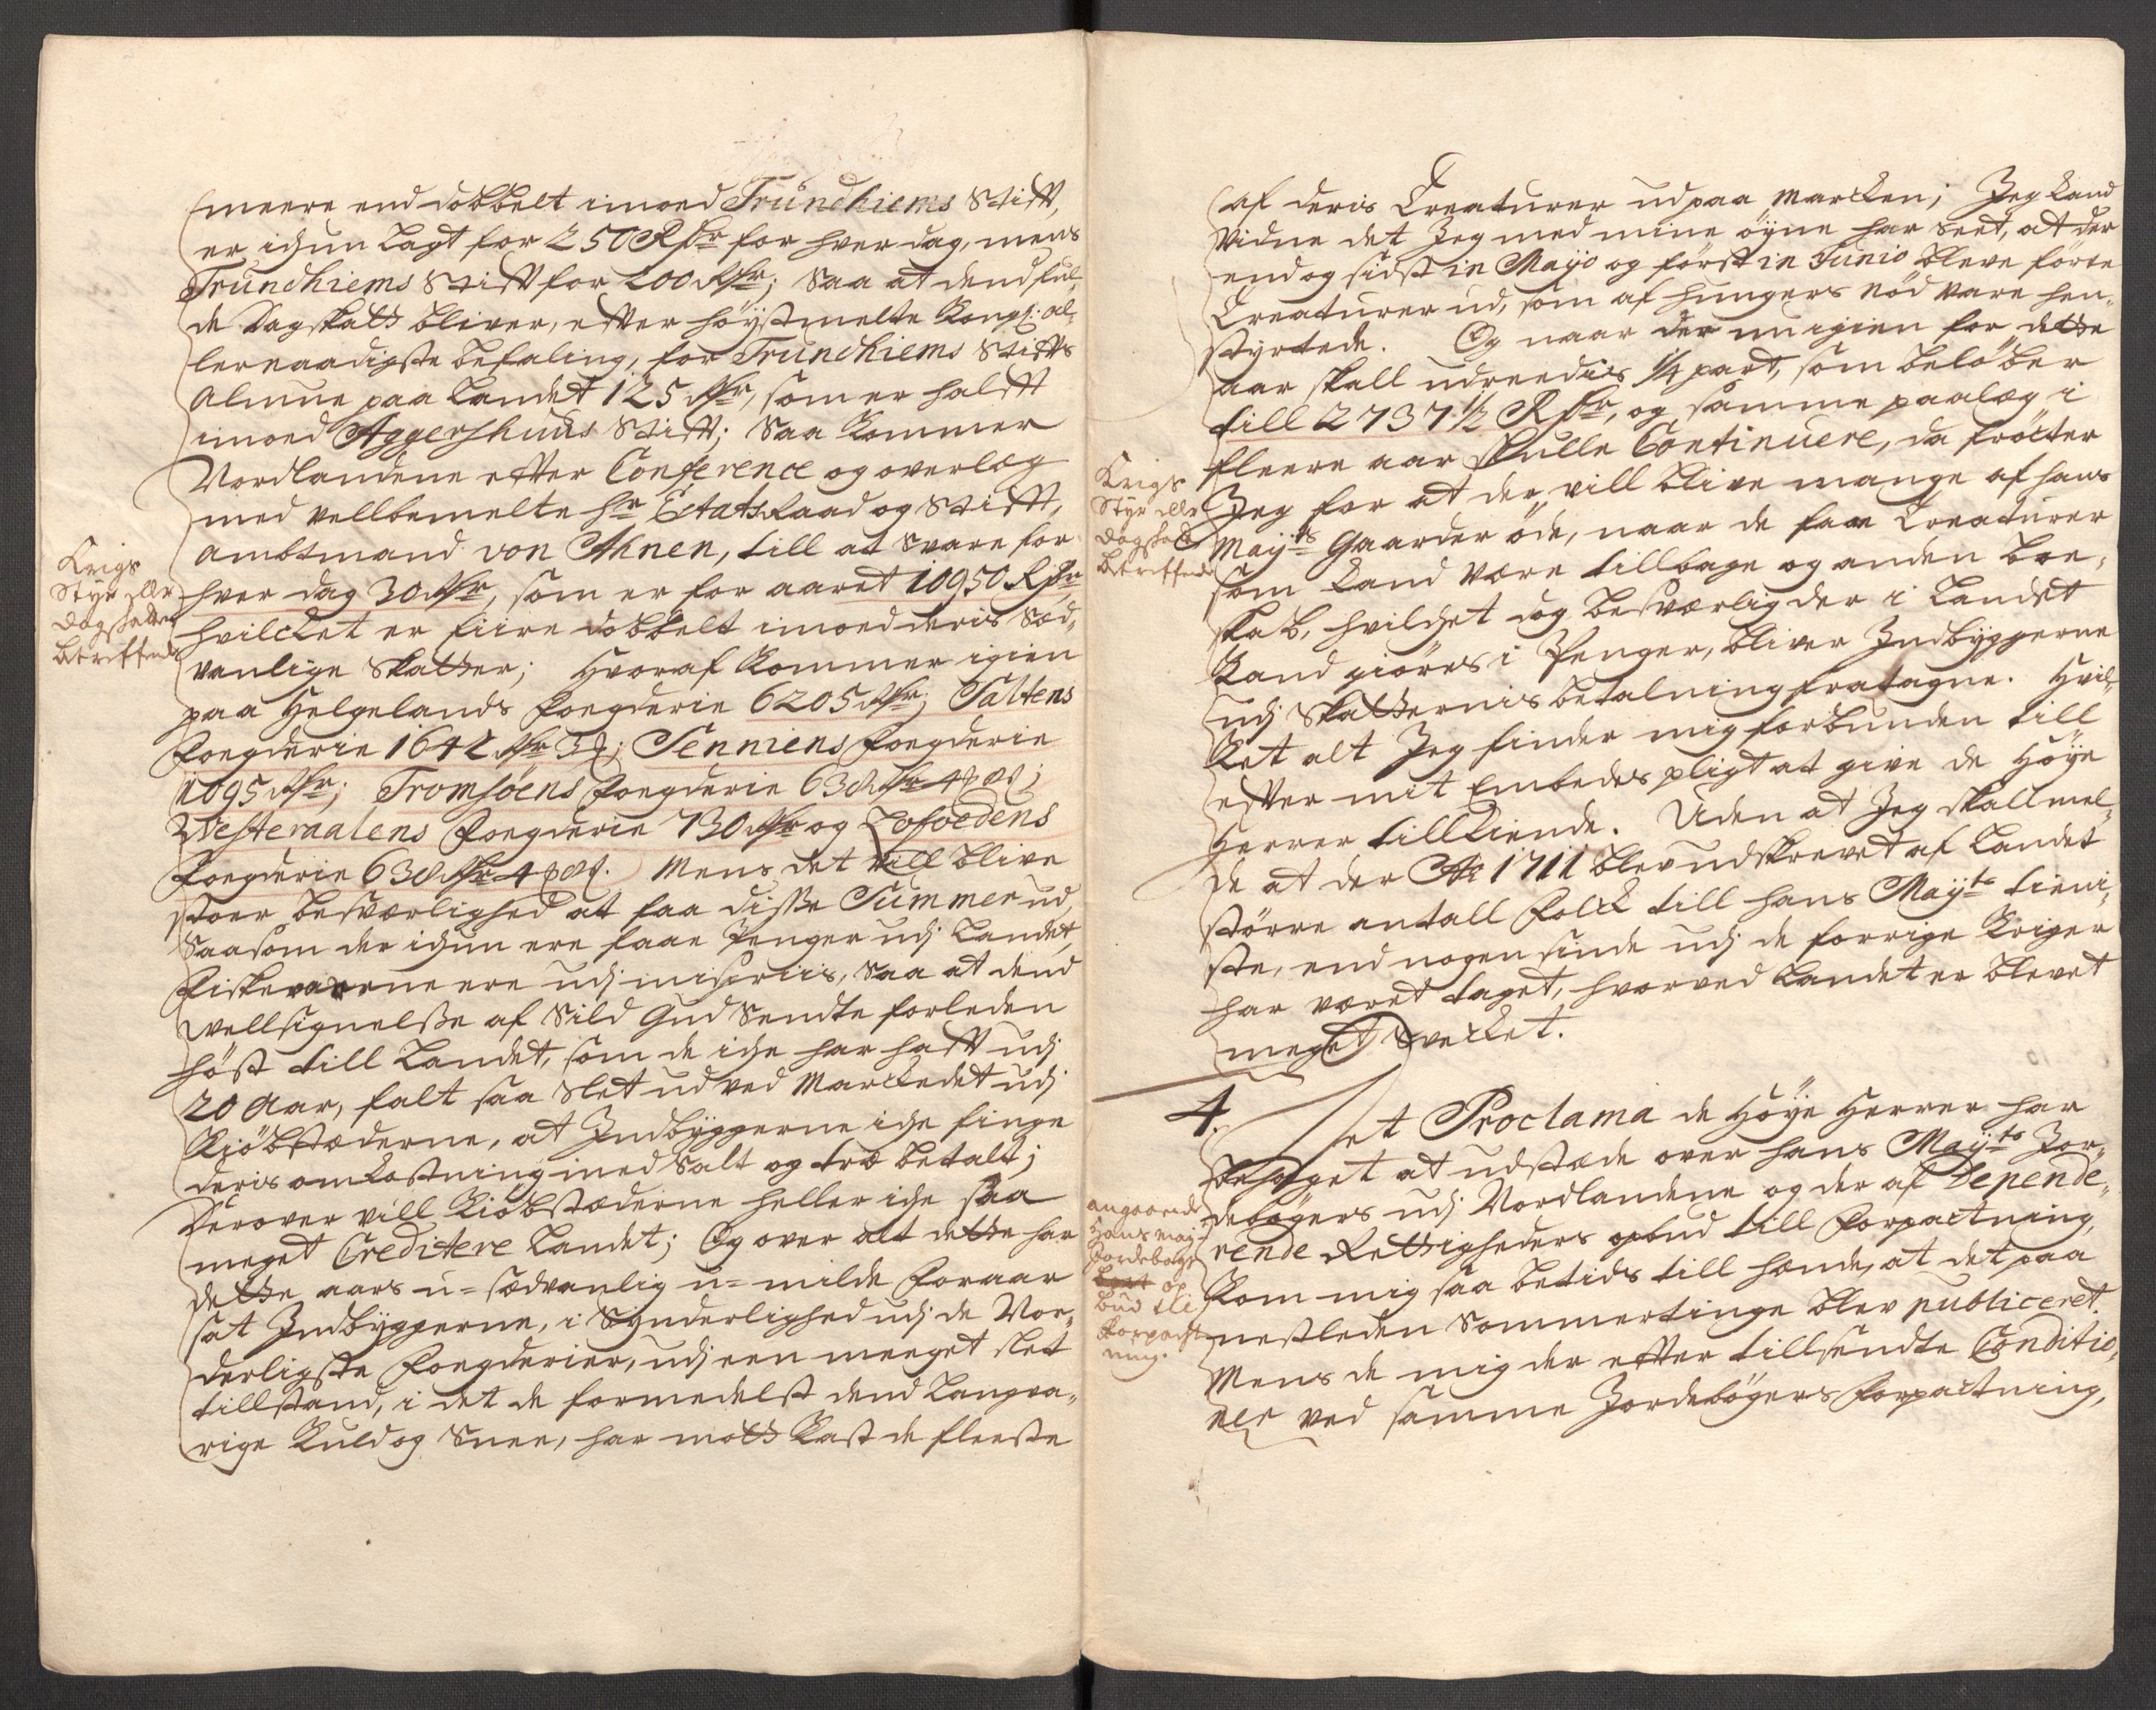 meere end dobbelt imoed Trundhiems Stifft,
er ichun lagt for 250 Rdr for hver dag, mens
Trundhiems Stifft for 200 Rdr; Saa at dend ful,
de Dagskatt bliver, efter høystmelte Kongl: al,
lernaadigste befaling, for Trundhiems Stiffts
Almue paa Landet 125 Rdr, som er halfft
imoed Aggershuus Stifft; Saa kommer
Nordlandene efter Conference og overlæg
med vellbemelte hr Etatsraad og Stifft,
ambtmand von Ahnen, till at svare for
hver dag 30 Rdr, som er for aaret 10950 Rdr
hvilcket er fiire dobbelt imoed deris sæd,
vanlige Skatter; Hvoraf kommer igien
paa Helgelands fogderie 6205 Rdr; Saltens
fogderie 1642 Rdr 3 ; Senniens fogderie
1095 Rdr; Tromsøens fogderie 638 Rdr 4
Westeraalens fogderie 730 Rdr og Lofoedens
fogderie 638 Rdr 4 . Mens det vill blive
stoer besværlighed at faa disse Summer ud,
Saasom der ichun ere faae Penger udj Landet,
Fiskevarerne ere udj miseriis, saa at dend
vellsignelsse af Sild Gud sendte forleden
høst till Landet, som de iche har hafft udj
20 Aar, falt saa slet ud ved Marckedet udj
Kiøbstæderne, at Indbyggerne iche finge
deris omkostning med Salt og træ betalt;
Derover vill Kiøbstæderne heller iche saa
meget Creditere Landet; Og over alt dette har
dette aars u-sædvanlig u-milde foraar
sat Indbyggerne, i Synderlighed udj de Nor,
derligste fogderier, udj een meeget slet
tillstand, i det de formedelst dend langva,
rige kuld og Snee, har mott kast de fleeste
Krigs
Styr eller
dagskatten
betreffende
af deris Creaturer ud paa Marcken; Jeg kand
vidne det Jeg med mine øyne har Seet, at der
end og sidst in Mayo og først in Junio bleve førte
Creaturer ud, som af hungers nød vare hen,
styrtede. Og naar der nu igien for dette
aar skall udreedis 1/4 part, som beløber
till 2737 1/2 Rdr, og samme paalæg i
fleere aar skulle Continuere, da frøcter
Jeg for at der vill blive mange af hans
Mayts Gaarder øde, naar de faae Creaturer
som kand være tillbage og anden boe,
skab, hvilchet dog besværlig der i Landet
kand giøres i Penger, bliver Indbyggerne
udj Skatternis betalning fratagne. Hvil,
ket alt Jeg finder mig forbunden till
efter mit Embedes pligt at give de Høye
Herrer tillkiende. Uden at Jeg skall mel,
de at der Ao 1711 blev udskrevet af Landet
større antall folck till hans Mayts tieni,
ste, end nogensinde udj de forrige Kriger
har været taget, hvorved Landet er blevet
meget svecket.
Krigs
Styr eller
dagskatt
betreffende
4. Et Proclama de Høye Herrer har
behaget at udstæde over hans Mayts Jor,
debøgers udj Nordlandene og der af Depende,
rende Rettigheders opbud till forpactning,
kom mig saa betids till hænde, at det paa
nestleden Sommertinge blev publiceret.
Mens de mig der efter tillsendte Conditio,
ner ved samme Jordebøgers forpactning,
angaaende
Hans may:
Jordebøger
op
bud til
forpacht
ning.